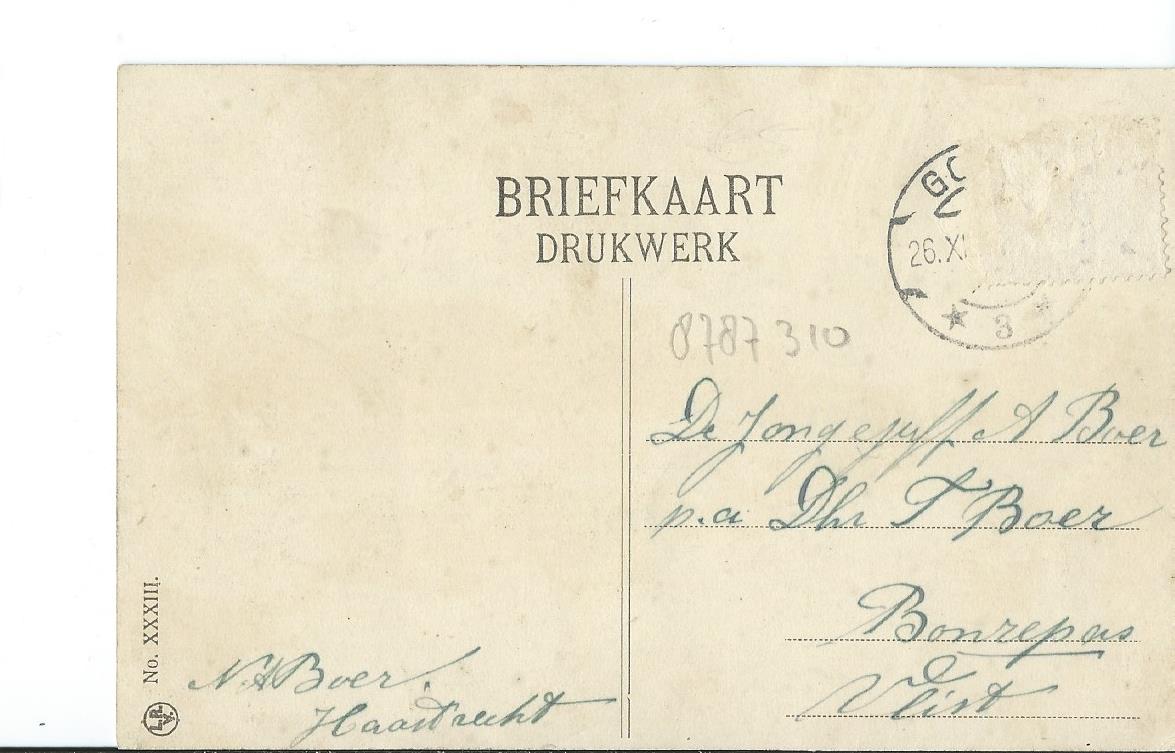 BRIEFKAART
DRUKWERK
GO
26.XI
3
8787 310
De Jongejuff A Boer
p.a Dhr T Boer
Bonrepas
Vlist
N A Boer.
Haastrecht
No. XXXIII.
L.R.
V.